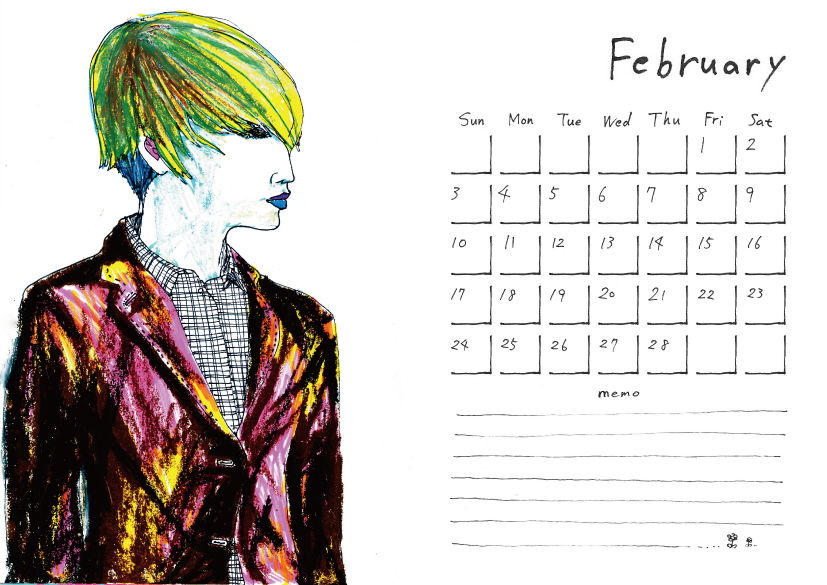 February
Sun Mon Tue Wed Thu Fri Sat
1 2
3 4 5 6 7 8 9
10 11 12 13 14 15 16
17 18 19 20 21 22 23
24 25 26 27 28
memo